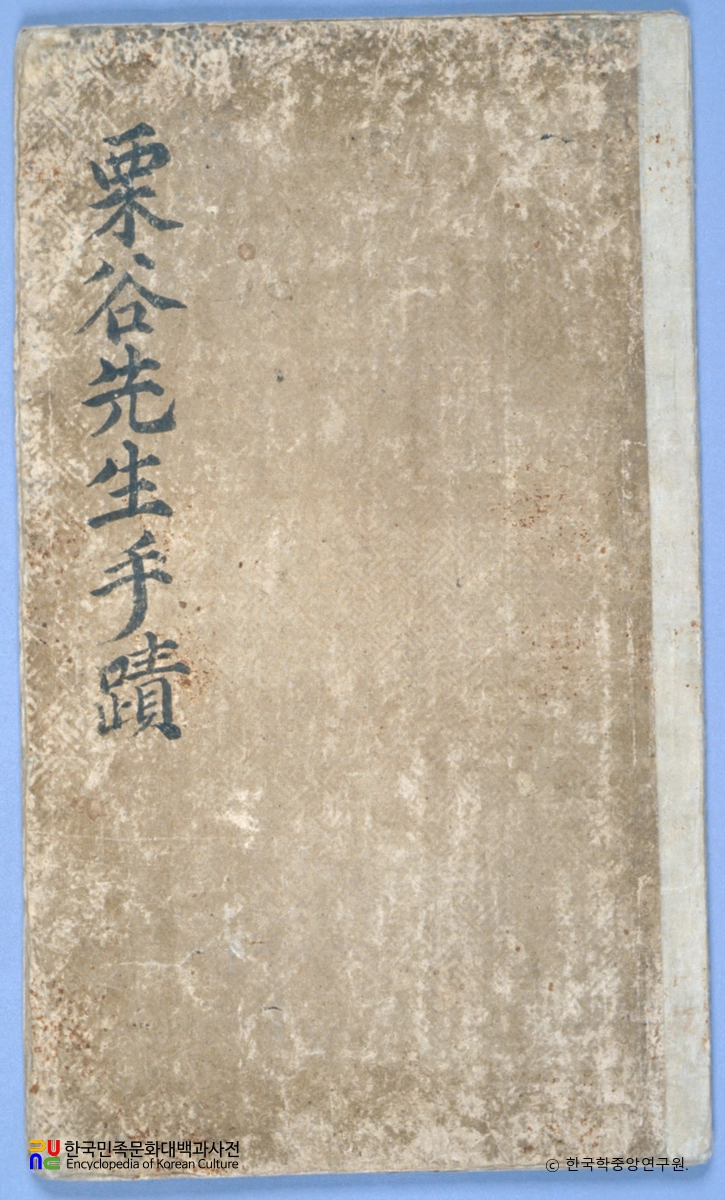 栗谷先生手蹟
한국민족문화대백과사전
Encyclopedia of Korean Culture
© 한국학중앙연구원.